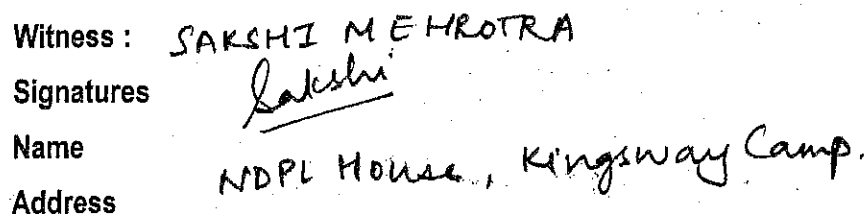 Witness : SAKSHI MEHROTRA
Signatures Sakshi
Name
Address NDPL House, Kingsway Camp.